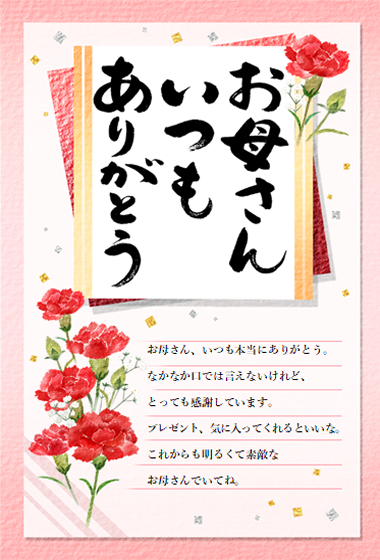 お母さん
いつも
ありがとう
お母さん、いつも本当にありがとう。
なかなか口では言えないけれど、
とっても感謝しています。
プレゼント、気に入ってくれるといいな。
これからも明るくて素敵な
お母さんでいてね。